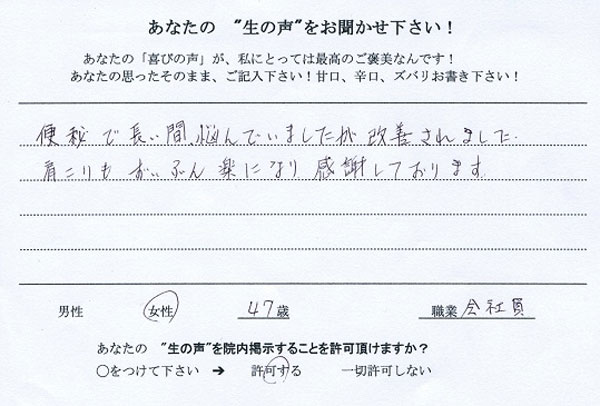 あなたの "生の声"をお聞かせ下さい！
あなたの「喜びの声」が、私にとっては最高のご褒美なんです！
あなたの思ったそのまま、ご記入下さい！甘口、辛口、ズバリお書き下さい！
便秘で長い間、悩んでいましたが改善されました.
肩こりもずいぶん楽になり感謝しております
男性 女性 47歳 職業 会社員
あなたの "生の声"を院内掲示することを許可頂けますか？
○をつけて下さい → 許可する 一切許可しない